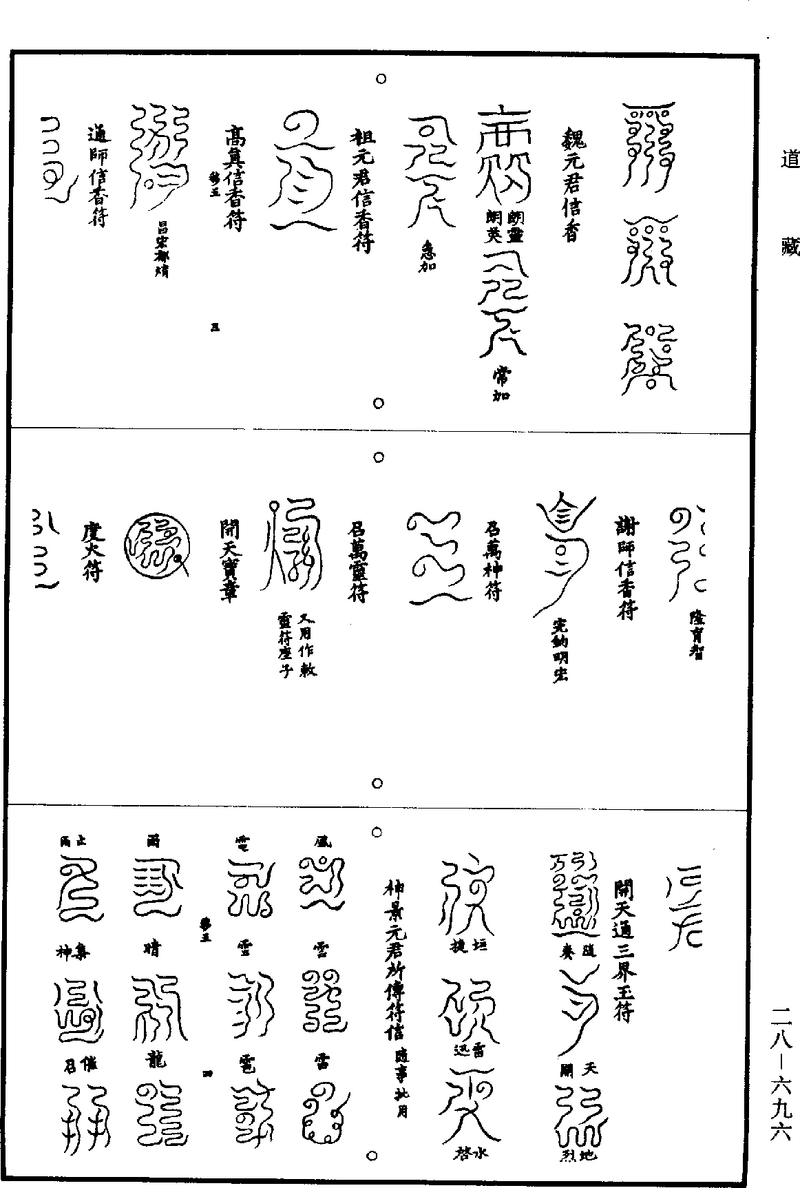 道藏
二八—六九六
魏元君信香
朗靈
朗英
常加
急加
祖元君信香符
高眞信香符
三
昌宏都靖
通師信香符
隆育智
謝師信香符
完鈉明宏
召萬神符
召萬靈符
又用作敕
靈符座子
開天寶章
度火符
開天通三界玉符
開天
烈地
垣捷
雷迅
水啓
神景元君所傳符信
隨事批用
風
雲
雷
電
雪
雹
四
雨
晴
龍
止雨
集神
催召